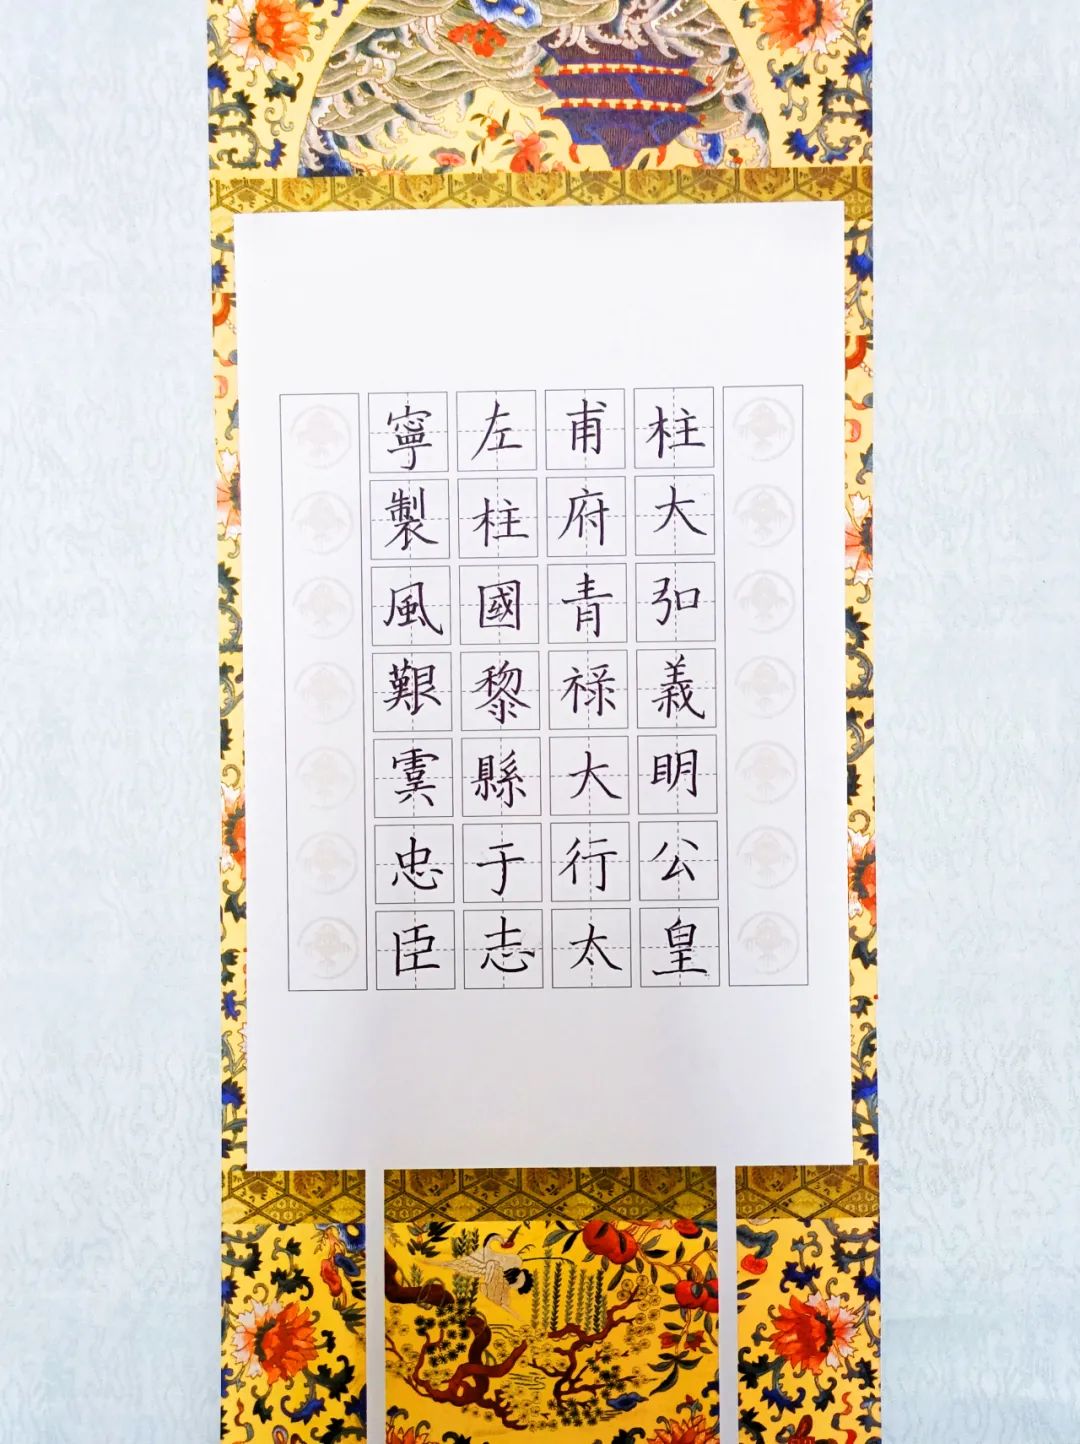 柱大弘義明公皇
甫府青禄大行太
左柱國黎縣于志
寧製風艱虞忠臣